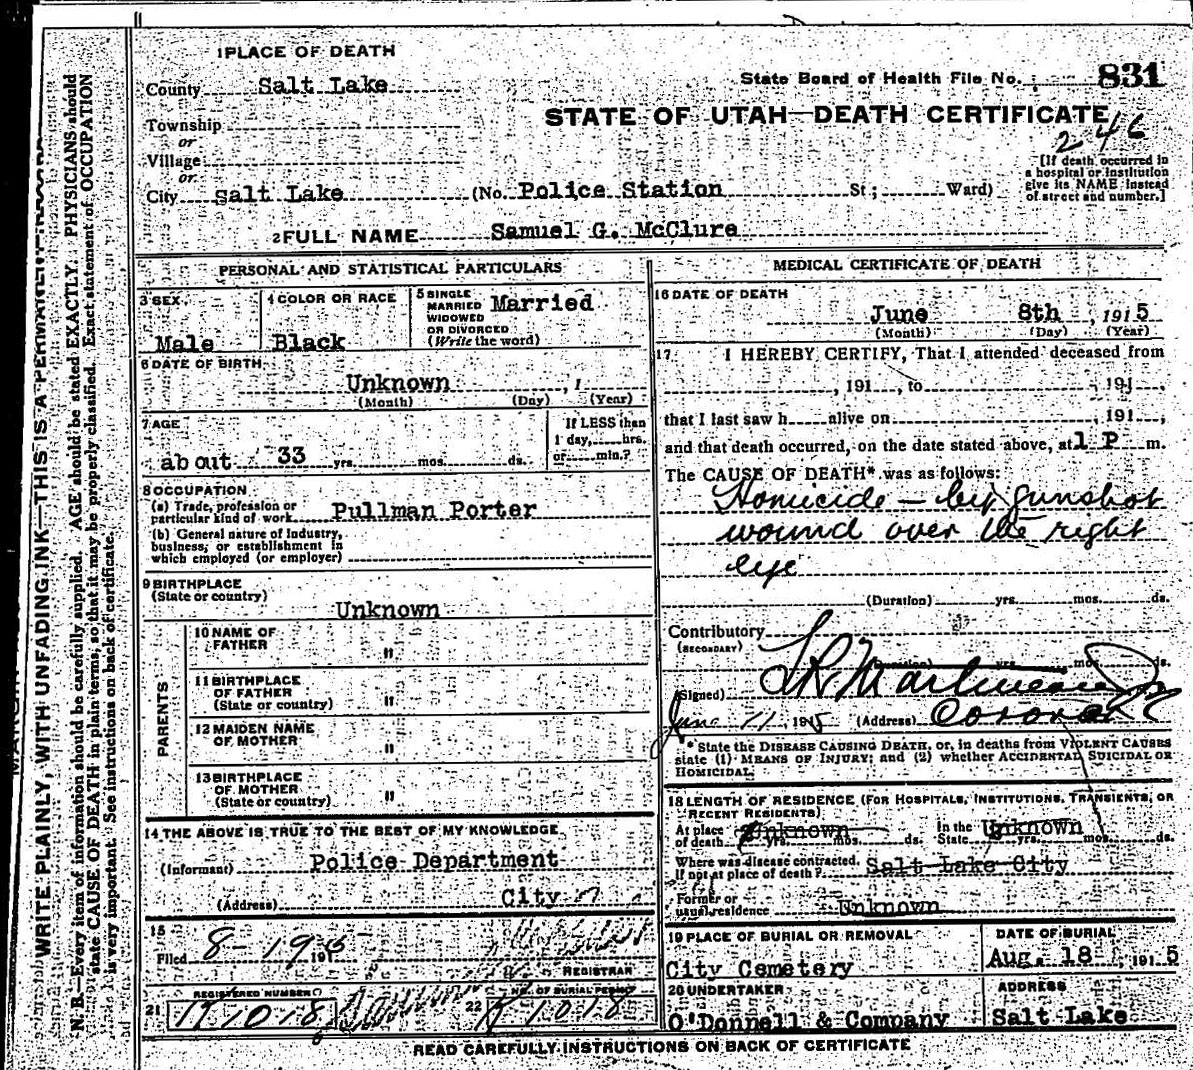 1 PLACE OF DEATH
County Salt Lake
State Board of Health File No. 831
Township
or
STATE OF UTAH—DEATH CERTIFICATE
246
Village
or
[If death occurred in
a hospital or institution
give its NAME instead
of street and number.]
City Salt Lake (No. Police Station St; Ward)
2 FULL NAME Samuel G. McClure
PERSONAL AND STATISTICAL PARTICULARS
3 SEX
Male
4 COLOR OR RACE
Black
5 SINGLE
MARRIED
WIDOWED
OR DIVORCED
(Write the word)
Married
6 DATE OF BIRTH
Unknown , 1
(Month) (Day) (Year)
7 AGE
about 33 yrs. mos. ds.
If LESS than
1 day, hrs.
or min.?
8 OCCUPATION
(a) Trade, profession or
particular kind of work Pullman Porter
(b) General nature of industry,
business, or establishment in
which employed (or employer)
9 BIRTHPLACE
(State or country)
Unknown
PARENTS
10 NAME OF
FATHER "
11 BIRTHPLACE
OF FATHER
(State or country) "
12 MAIDEN NAME
OF MOTHER "
13 BIRTHPLACE
OF MOTHER
(State or country) "
14 THE ABOVE IS TRUE TO THE BEST OF MY KNOWLEDGE
(Informant) Police Department
(Address) City
15
Filed 8-19 1915
REGISTRAR
21 REGISTERED NUMBER
22 NO. OF BURIAL PERMIT
1018
MEDICAL CERTIFICATE OF DEATH
16 DATE OF DEATH
June 8th , 1915
(Month) (Day) (Year)
17 I HEREBY CERTIFY, That I attended deceased from
, 191 , to , 191 ,
that I last saw h alive on , 191 ,
and that death occurred, on the date stated above, at 1 P m.
The CAUSE OF DEATH* was as follows:
Homicide — by gunshot
wound over the right
eye
(Duration) yrs. mos. ds.
Contributory
(SECONDARY)
(Duration) yrs. mos. ds.
(Signed)
June 11, 1915 (Address) Coroner
* State the DISEASE CAUSING DEATH, or, in deaths from VIOLENT CAUSES
state (1) MEANS OF INJURY; and (2) whether ACCIDENTAL, SUICIDAL OR
HOMICIDAL.
18 LENGTH OF RESIDENCE (FOR HOSPITALS, INSTITUTIONS, TRANSIENTS, OR
RECENT RESIDENTS)
At place
of death Unknown yrs. mos. ds.
In the
State Unknown yrs. mos. ds.
Where was disease contracted,
If not at place of death? Salt Lake City
Former or
usual residence Unknown
19 PLACE OF BURIAL OR REMOVAL
City Cemetery
DATE OF BURIAL
Aug. 18 , 1915
20 UNDERTAKER
O'Donnell & Company
ADDRESS
Salt Lake
READ CAREFULLY INSTRUCTIONS ON BACK OF CERTIFICATE
WRITE PLAINLY, WITH UNFADING INK—THIS IS A PERMANENT RECORD
N. B.—Every item of information should be carefully supplied. AGE should be stated EXACTLY. PHYSICIANS should
state CAUSE OF DEATH in plain terms, so that it may be properly classified. Exact statement of OCCUPATION
is very important. See instructions on back of certificate.